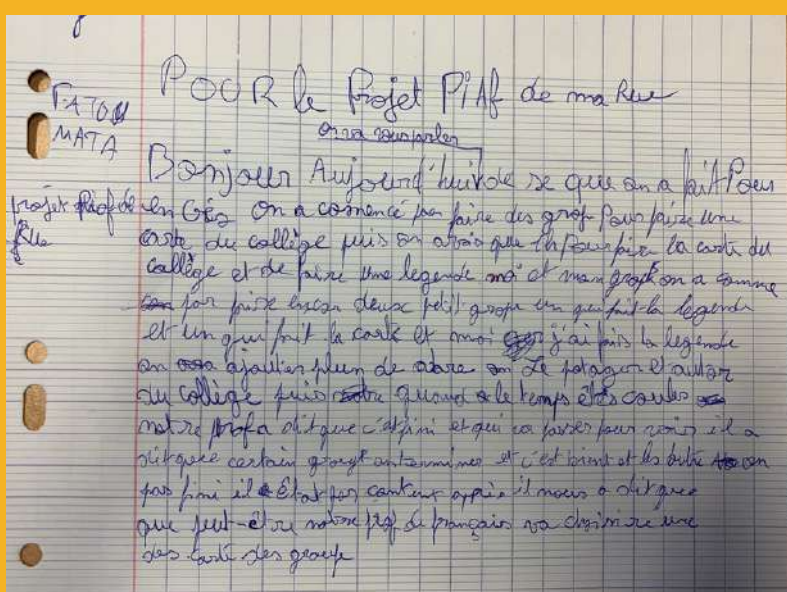 POUR le Projet PiAf de ma Rue
FATOU
MATA
on va vous parler
Bonjour Aujourd'hui de se que on a fait Pour
projet Piaf de
Rue
en Géo On a comencé par faire des grop Pour faire une
carte du collège puis on avais que 1h Pour faire la carte du
collège et de faire une legende moi et mon grop on a comme
par faire encor deux petit grope un qui fait la legende
et un qui fait la carte et moi j'ai fais la legende
on a ajoutier plun de abre on Le potager et autor
du collège puis quand le temps étés coulés
notre prof a dit que c'est fini et qui va passer pour voir il a
dit que certain groupe on terminer et c'est bient et les autre on
pas fini il Était pas content après il nous a dit que
que peut-être notre prof de français va choisire une
des carte des groupe